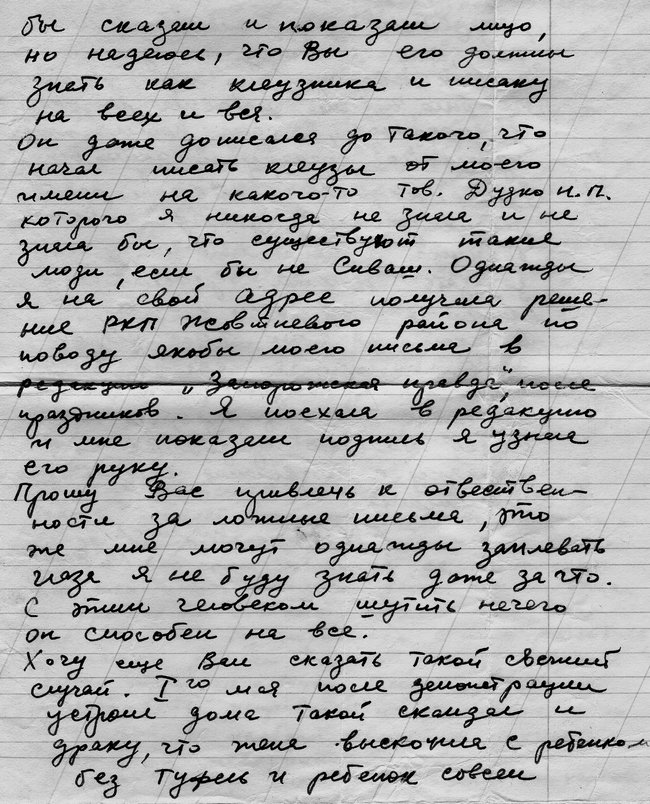 бы сказали и показали лицо,
но надеюсь, что Вы его должны
знать как клеузника и писаку
на всех и вся.
Он даже дописался до такого, что
начал писать клеузы от моего
имени на какого-то тов. Дудко Н.П.
которого я никогда не знала и не
знала бы, что существуют такие
люди, если бы не Сиваш. Однажды
я на свой адрес получила реше-
ние РКП Жовтневого района по
поводу якобы моего письма в
редакцию „Запорожская правда", после
праздников. Я поехала в редакцию
и мне показали подпись я узнала
его руку.
Прошу Вас привлечь к отвествен-
ности за ложные письма, это
же мне могут однажды заплевать
глаза я не буду знать даже за что.
С этим человеком шутить нечего
он способен на все.
Хочу еще Вам сказать такой свежий
случай. I го мая после демонстрации
устроил дома такой скандал и
драку, что жена выскочила с ребенком
без туфель и ребенок совсем